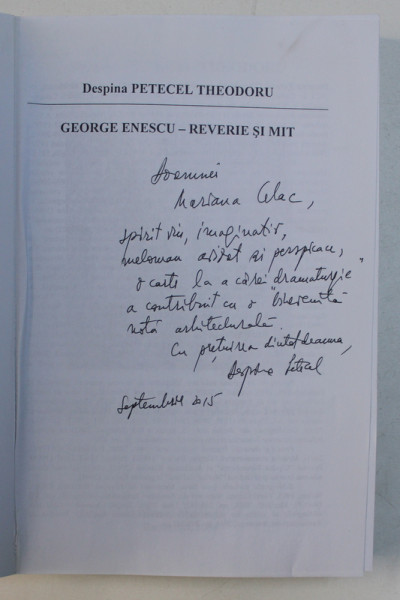 Despina PETECEL THEODORU
GEORGE ENESCU – REVERIE ȘI MIT
Doamnei
Mariana Celac,
spirit viu, imaginativ,
meloman avizat și perspicace,
o carte la a cărei dramaturgie
a contribuit cu o "binevenită"
notă arhitecturală.
Cu prețuirea dintotdeauna,
Despina Petecel
Septembrie 2015